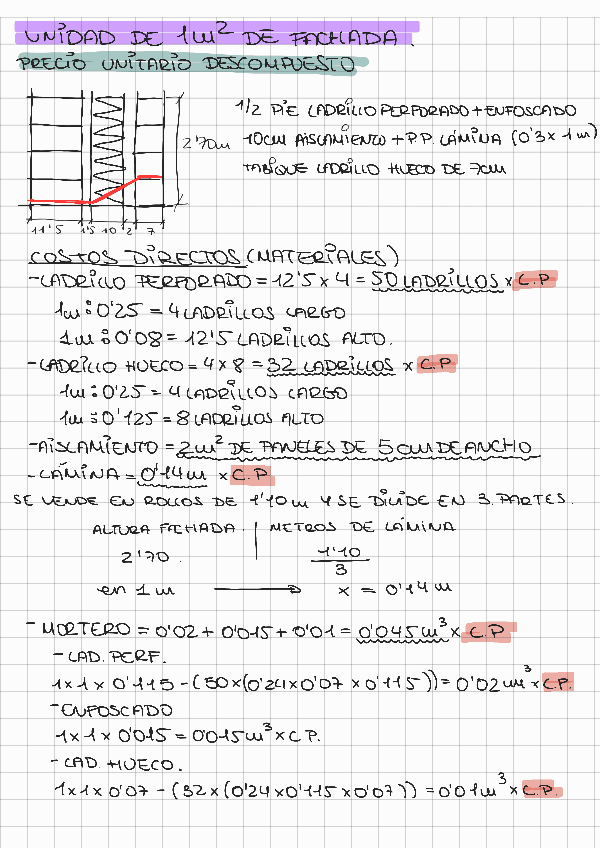 UNIDAD DE 1m² DE FACHADA.
PRECIO UNITARIO DESCOMPUESTO
1/2 PIE LADRILLO PERFORADO + ENFOSCADO
10cm AISLAMIENTO + P.P. LÁMINA (0'3 x 1m)
TABIQUE LADRILLO HUECO DE 7cm
2'70m
11'5 1'5 10 2 7
COSTOS DIRECTOS (MATERIALES)
- LADRILLO PERFORADO = 12'5 x 4 = 50 LADRILLOS x C.P
1m : 0'25 = 4 LADRILLOS LARGO
1m : 0'08 = 12'5 LADRILLOS ALTO.
- LADRILLO HUECO = 4 x 8 = 32 LADRILLOS x C.P
1m : 0'25 = 4 LADRILLOS LARGO
1m : 0'125 = 8 LADRILLOS ALTO
- AISLAMIENTO = 2m² DE PANELES DE 5cm DE ANCHO
- LÁMINA = 0'14m x C.P
SE VENDE EN ROLLOS DE 1'10m Y SE DIVIDE EN 3 PARTES.
ALTURA FACHADA. | METROS DE LÁMINA
2'70. 1'10/3
en 1m → x = 0'14m
- MORTERO = 0'02 + 0'015 + 0'01 = 0'045m³ x C.P
- LAD. PERF.
1x1x0'115 - (50x(0'24x0'07x0'115)) = 0'02m³ x C.P.
- ENFOSCADO
1x1x0'015 = 0'015m³ x C.P.
- LAD. HUECO.
1x1x0'07 - (32x(0'24x0'115x0'07)) = 0'01m³ x C.P.